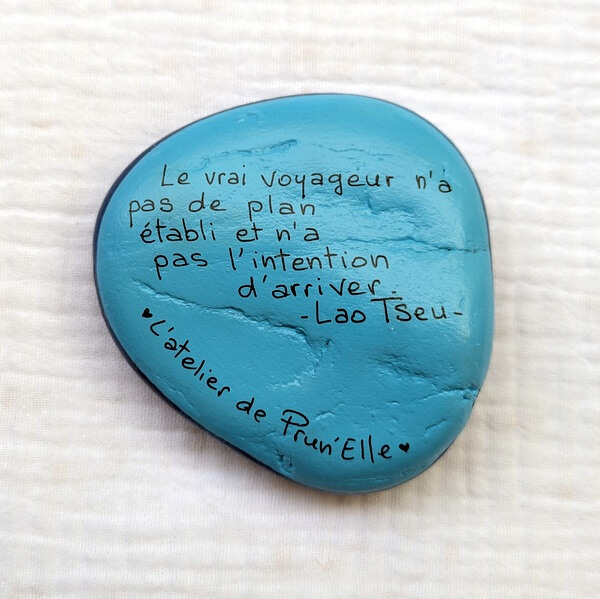 Le vrai voyageur n'a
pas de plan
établi et n'a
pas l'intention
d'arriver.
-Lao Tseu-
♥L'atelier de Prun'Elle♥